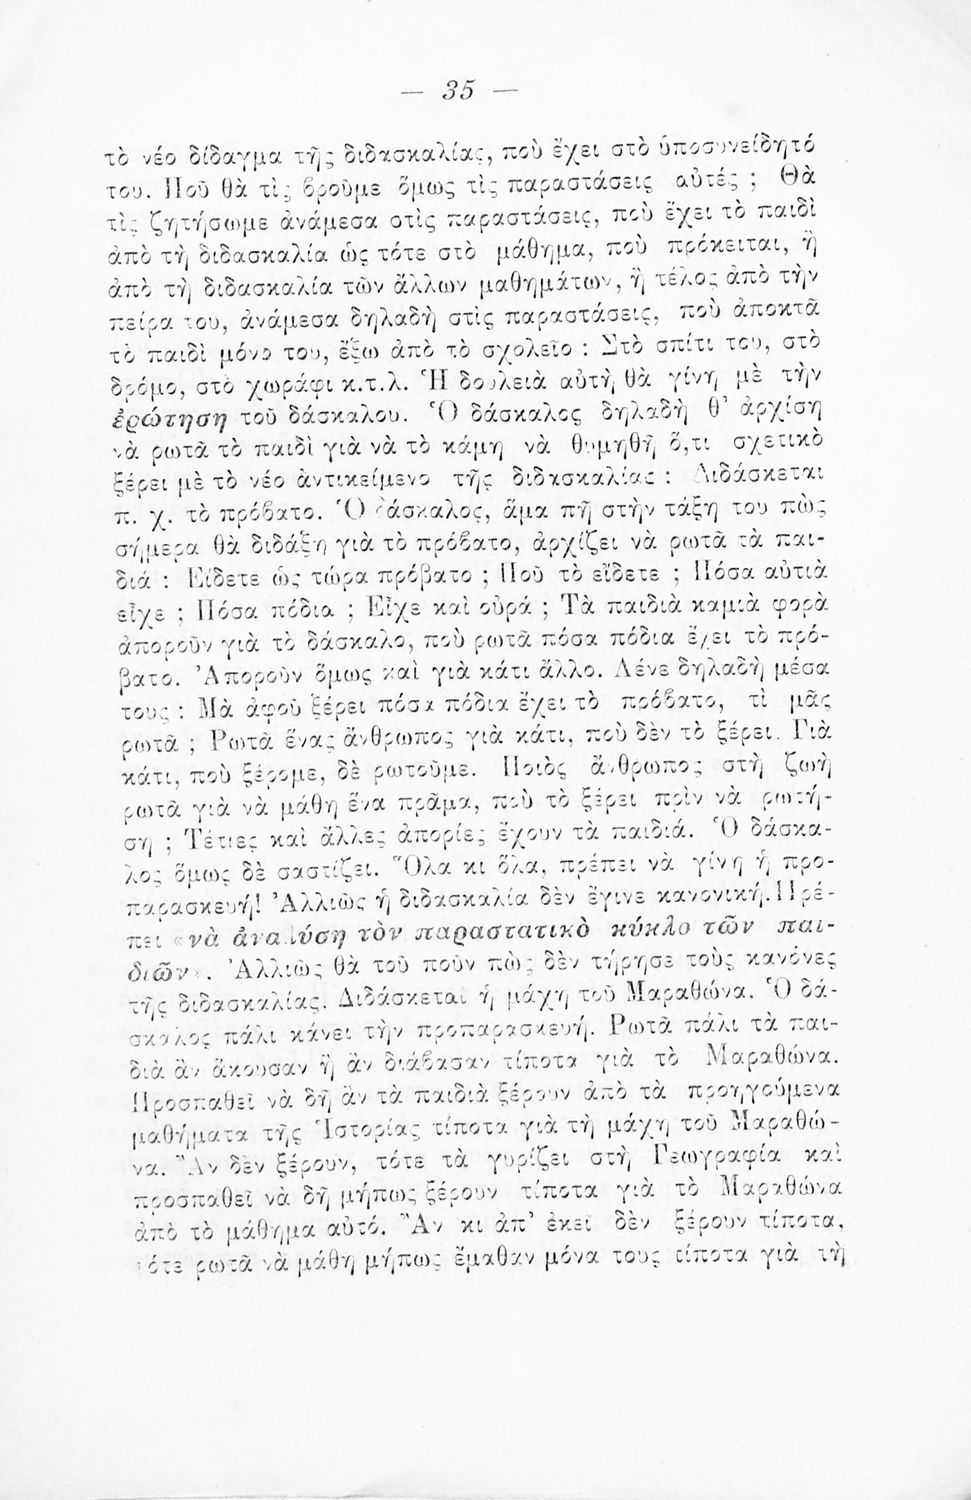 — 35 —
τὸ νέο δίδαγμα τῆς διδασκαλίας, ποὺ ἔχει στὸ ὑποσυνείδητό
του. Ποῦ θὰ τὶς βροῦμε ὅμως τὶς παραστάσεις αὐτές ; Θὰ
τὶς ζητήσωμε ἀνάμεσα στὶς παραστάσεις, ποὺ ἔχει τὸ παιδὶ
ἀπὸ τὴ διδασκαλία ὡς τότε στὸ μάθημα, ποὺ πρόκειται, ἢ
ἀπὸ τὴ διδασκαλία τῶν ἄλλων μαθημάτων, ἢ τέλος ἀπὸ τὴν
πείρα του, ἀνάμεσα δηλαδὴ στὶς παραστάσεις, ποὺ ἀποκτᾶ
τὸ παιδὶ μόνο του, ἔξω ἀπὸ τὸ σχολεῖο : Στὸ σπίτι του, στὸ
δρόμο, στὸ χωράφι κ.τ.λ. Ἡ δουλειὰ αὐτὴ θὰ γίνη μὲ τὴν
ἐρώτηση τοῦ δάσκαλου. Ὁ δάσκαλος δηλαδὴ θ’ ἀρχίση
νὰ ρωτᾶ τὸ παιδὶ γιὰ νὰ τὸ κάμη νὰ θυμηθῆ ὅ,τι σχετικὸ
ξέρει μὲ τὸ νέο ἀντικείμενο τῆς διδασκαλίας : Διδάσκεται
π. χ. τὸ πρόβατο. Ὁ δάσκαλος, ἅμα πῆ στὴν τάξη του πὼς
σήμερα θὰ διδάξη γιὰ τὸ πρόβατο, ἀρχίζει νὰ ρωτᾶ τὰ παι-
διά : Εἴδετε ὡς τώρα πρόβατο ; Ποῦ τὸ εἴδετε ; Πόσα αὐτιὰ
εἶχε ; Πόσα πόδια ; Εἶχε καὶ οὐρά ; Τὰ παιδιὰ καμιὰ φορὰ
ἀποροῦν γιὰ τὸ δάσκαλο, ποὺ ρωτᾶ πόσα πόδια ἔχει τὸ πρό-
βατο. Ἀποροῦν ὅμως καὶ γιὰ κάτι ἄλλο. Λένε δηλαδὴ μέσα
τους : Μὰ ἀφοῦ ξέρει πόσα πόδια ἔχει τὸ πρόβατο, τὶ μᾶς
ρωτᾶ ; Ρωτᾶ ἕνας ἄνθρωπος γιὰ κάτι, ποὺ δὲν τὸ ξέρει. Γιὰ
κάτι, ποὺ ξέρομε, δὲ ρωτοῦμε. Ποιὸς ἄνθρωπος στὴ ζωὴ
ρωτᾶ γιὰ νὰ μάθη ἕνα πρᾶμα, ποὺ τὸ ξέρει πρὶν νὰ ρωτή-
ση ; Τέτιες καὶ ἄλλες ἀπορίες ἔχουν τὰ παιδιά. Ὁ δάσκα-
λος ὅμως δὲ σαστίζει. Ὅλα κι ὅλα, πρέπει νὰ γίνη ἡ προ-
παρασκευή! Ἀλλιῶς ἡ διδασκαλία δὲν ἔγινε κανονική. Πρέ-
πει «νὰ ἀναλύση τὸν παραστατικὸ κύκλο τῶν παι-
διῶν». Ἀλλιῶς θὰ τοῦ ποῦν πὼς δὲν τήρησε τοὺς κανόνες
τῆς διδασκαλίας. Διδάσκεται ἡ μάχη τοῦ Μαραθώνα. Ὁ δά-
σκαλος πάλι κάνει τὴν προπαρασκευή. Ρωτᾶ πάλι τὰ παι-
διὰ ἂν ἄκουσαν ἢ ἂν διάβασαν τίποτα γιὰ τὸ Μαραθώνα.
Προσπαθεῖ νὰ δῆ ἂν τὰ παιδιὰ ξέρουν ἀπὸ τὰ προηγούμενα
μαθήματα τῆς Ἱστορίας τίποτα γιὰ τὴ μάχη τοῦ Μαραθώ-
να. Ἂν δὲν ξέρουν, τότε τὰ γυρίζει στὴ Γεωγραφία καὶ
προσπαθεῖ νὰ δῆ μήπως ξέρουν τίποτα γιὰ τὸ Μαραθώνα
ἀπὸ τὸ μάθημα αὐτό. Ἂν κι ἀπ’ ἐκεῖ δὲν ξέρουν τίποτα,
τότε ρωτᾶ νὰ μάθη μήπως ἔμαθαν μόνα τους τίποτα γιὰ τὴ